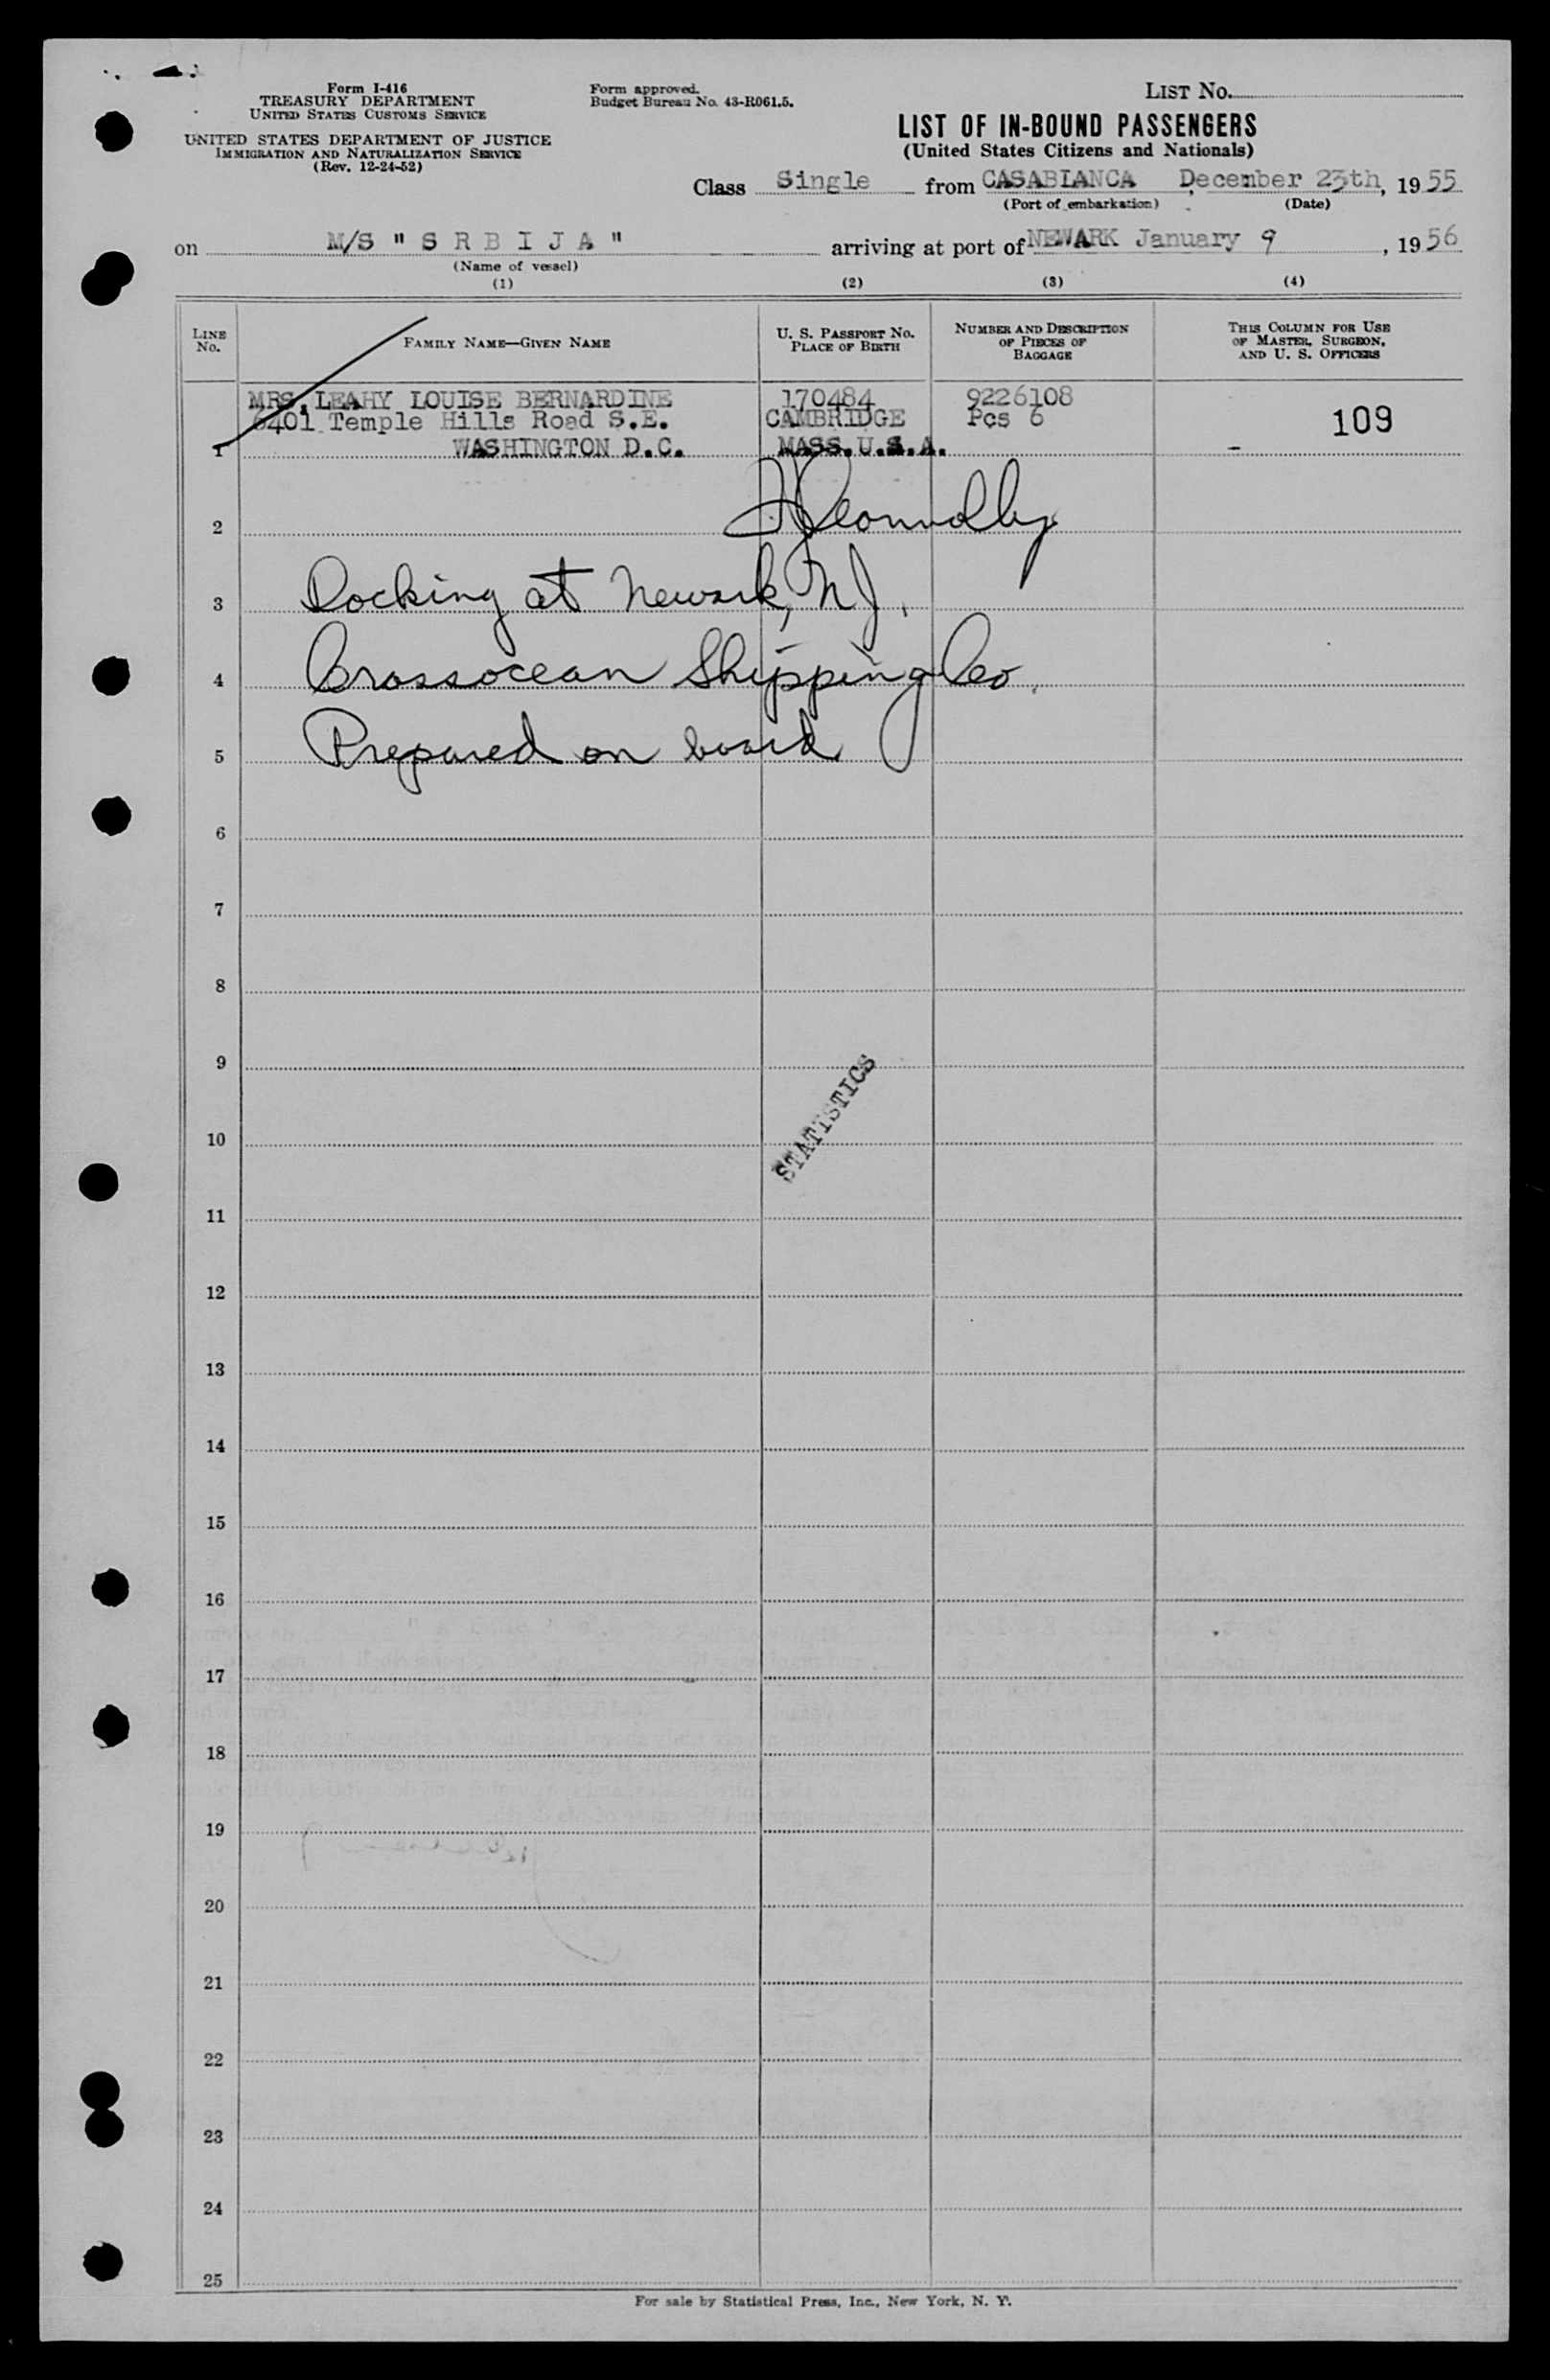 Form I-416
TREASURY DEPARTMENT
UNITED STATES CUSTOMS SERVICE
UNITED STATES DEPARTMENT OF JUSTICE
IMMIGRATION AND NATURALIZATION SERVICE
(Rev. 12-24-52)
Form approved.
Budget Bureau No. 43-R061.5.
LIST No.
LIST OF IN-BOUND PASSENGERS
(United States Citizens and Nationals)
Class Single from CASABLANCA, December 23th, 1955
(Port of embarkation) (Date)
on M/S "SRBIJA" arriving at port of NEWARK January 9, 1956
(Name of vessel)
(1) (2) (3) (4)
LINE No. FAMILY NAME—GIVEN NAME U. S. PASSPORT No. PLACE OF BIRTH NUMBER AND DESCRIPTION OF PIECES OF BAGGAGE THIS COLUMN FOR USE OF MASTER, SURGEON, AND U. S. OFFICERS
MRS. LEAHY LOUISE BERNARDINE 170484 9226108
6401 Temple Hills Road S.E. CAMBRIDGE Pcs 6 109
1 WASHINGTON D.C. MASS.U.S.A. -
2
3 Docking at Newark, N.J.
4 Crossocean Shipping Co.
5 Prepared on board
6
7
8
9
STATISTICS
10
11
12
13
14
15
16
17
18
19
20
21
22
23
24
25
For sale by Statistical Press, Inc., New York, N. Y.